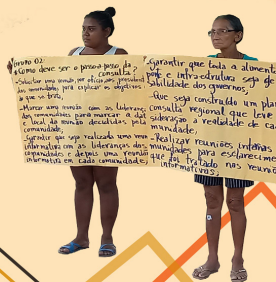 Grupo 02:
• Como deve ser o passo-a-passo da consulta?
- Solicitar uma reunião, por ofício aos presidentes
das comunidades para explicar os objetivos
do que se trata,
- Marcar uma reunião com as lideranças
das comunidades para marcar a data
e local da reunião decididos pela
comunidade,
- Garantir que seja realizada uma reunião
informativa com as lideranças das
comunidades e depois uma reunião
informativa em cada comunidade;
- Garantir que toda a aliment
e infraestrutura seja de
bilidade dos governos;
- Que seja construído um plan
consulta regional que leve
sideração a realidade de ca
munidade,
- Realizar reuniões internas
munidades para esclarecim
que foi tratado nas reuniõ
informativas;